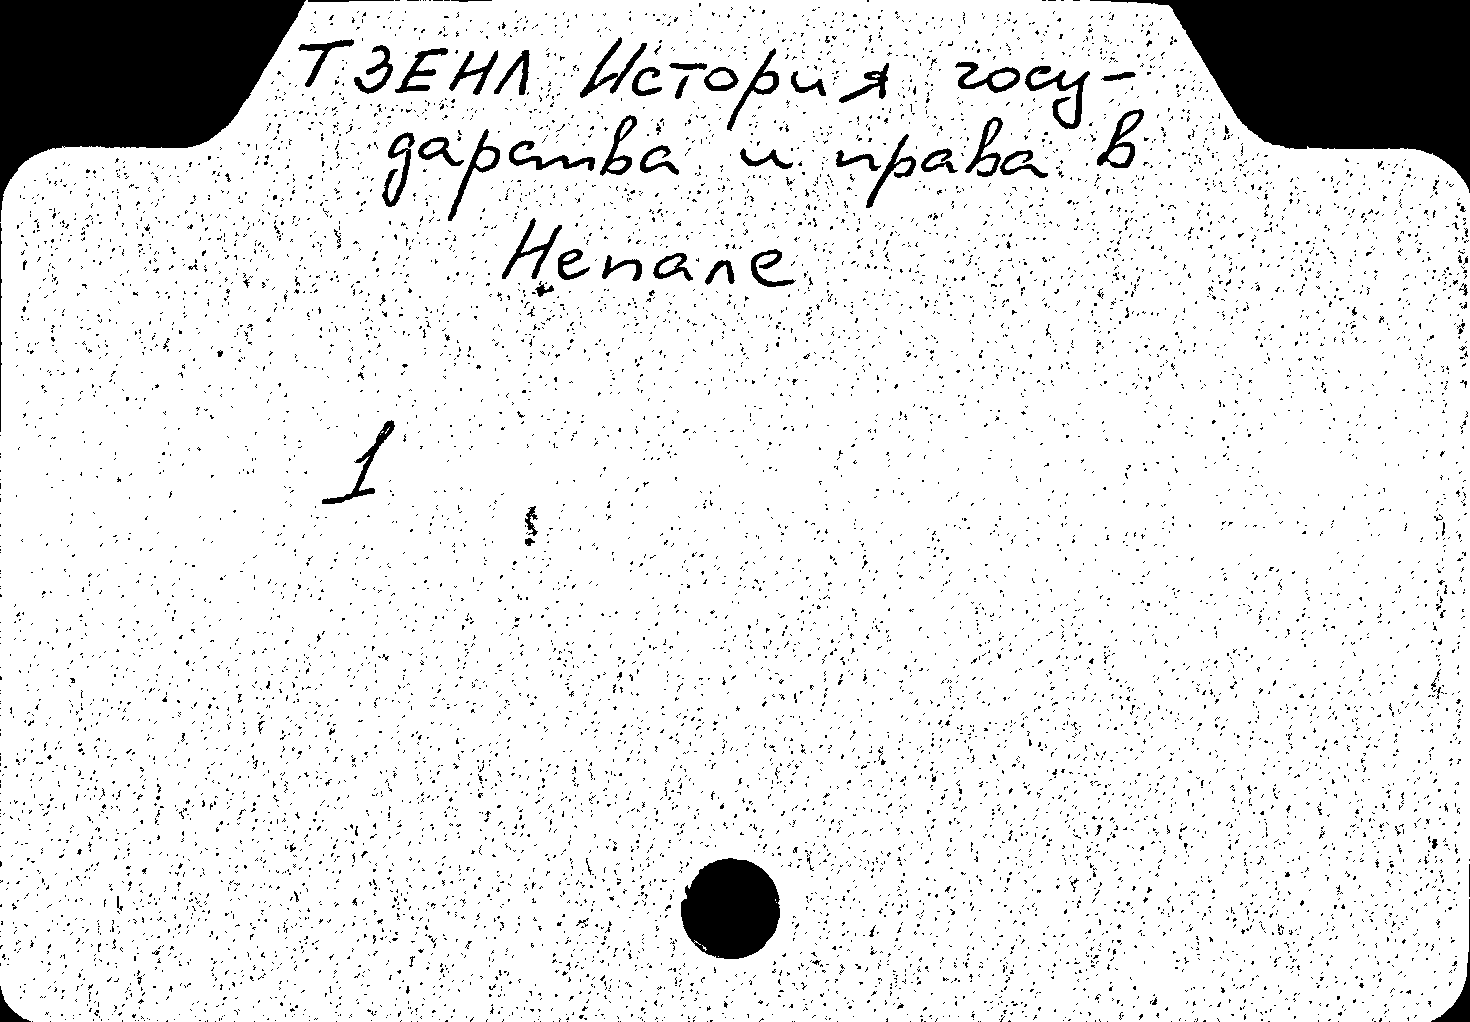 ТЗЕНЛ История госу-
дарства и права в
Непале
1